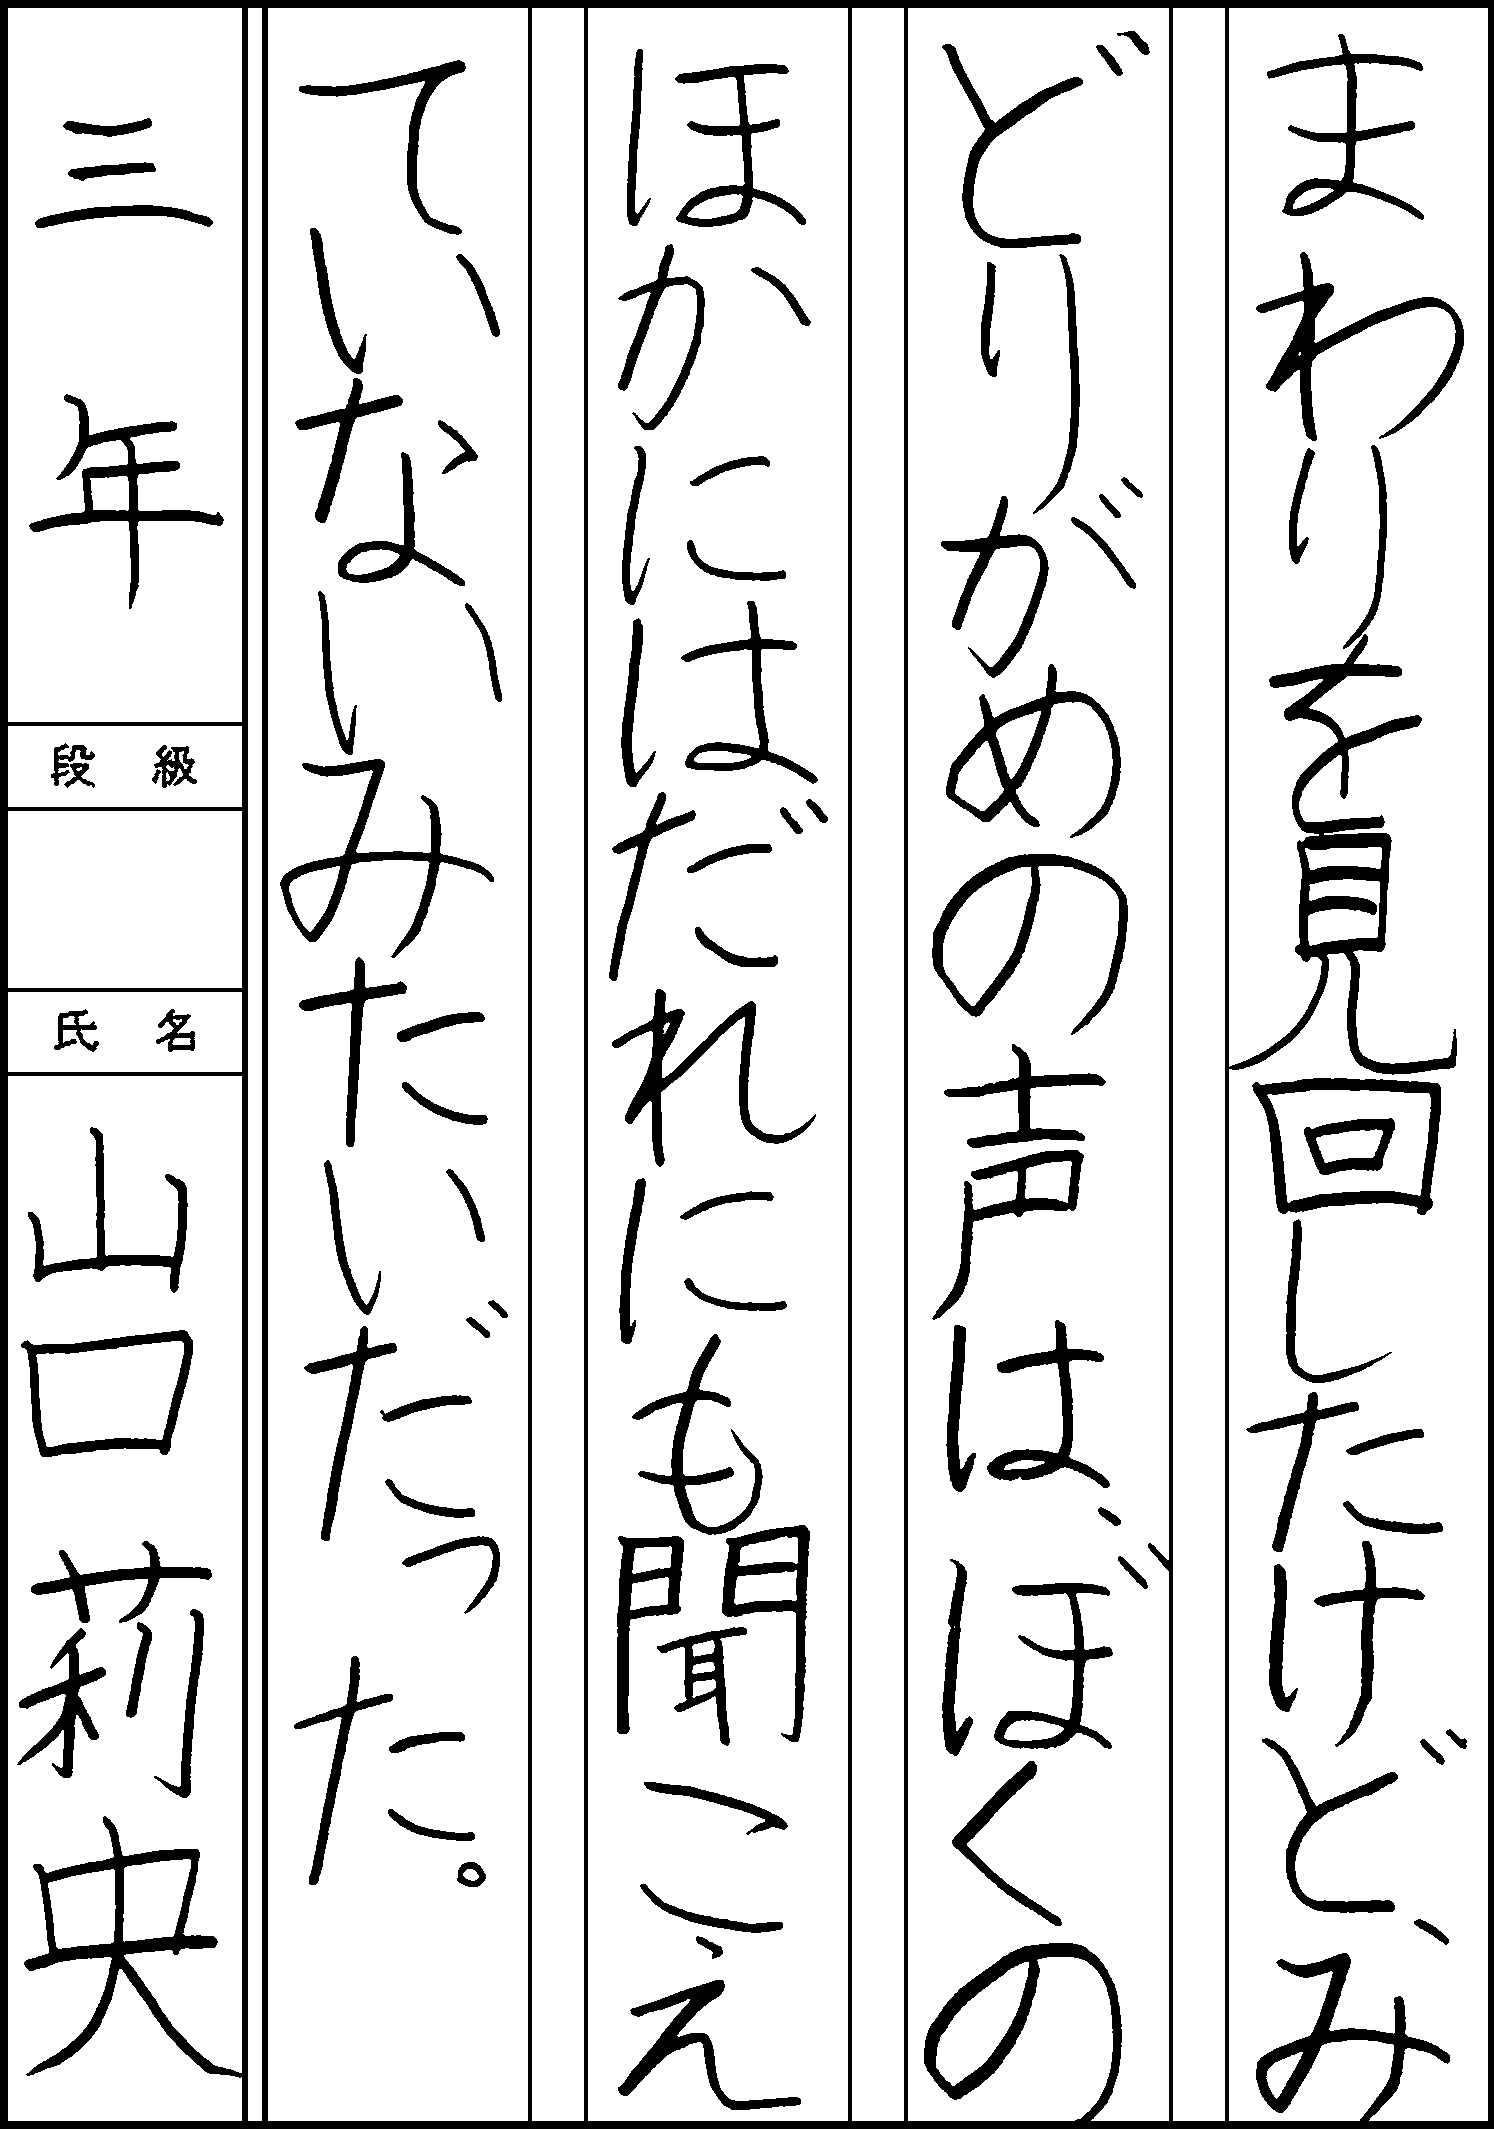 まわりを見回したけど、み
どりがめの声は、ぼくの
ほかにはだれにも聞こえ
ていないみたいだった。
三年
段級
氏名
山口莉央